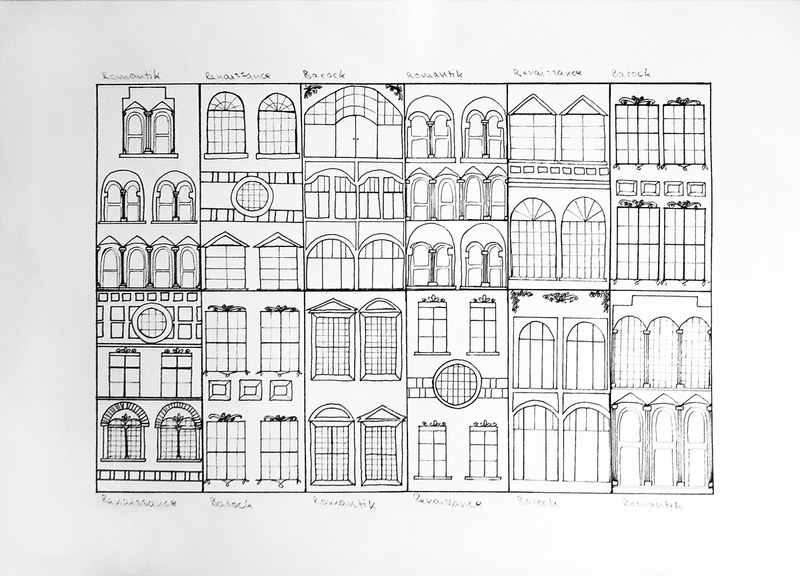 Romantik Renaissance Barock Romantik Renaissance Barock
Renaissance Barock Romantik Renaissance Barock Romantik